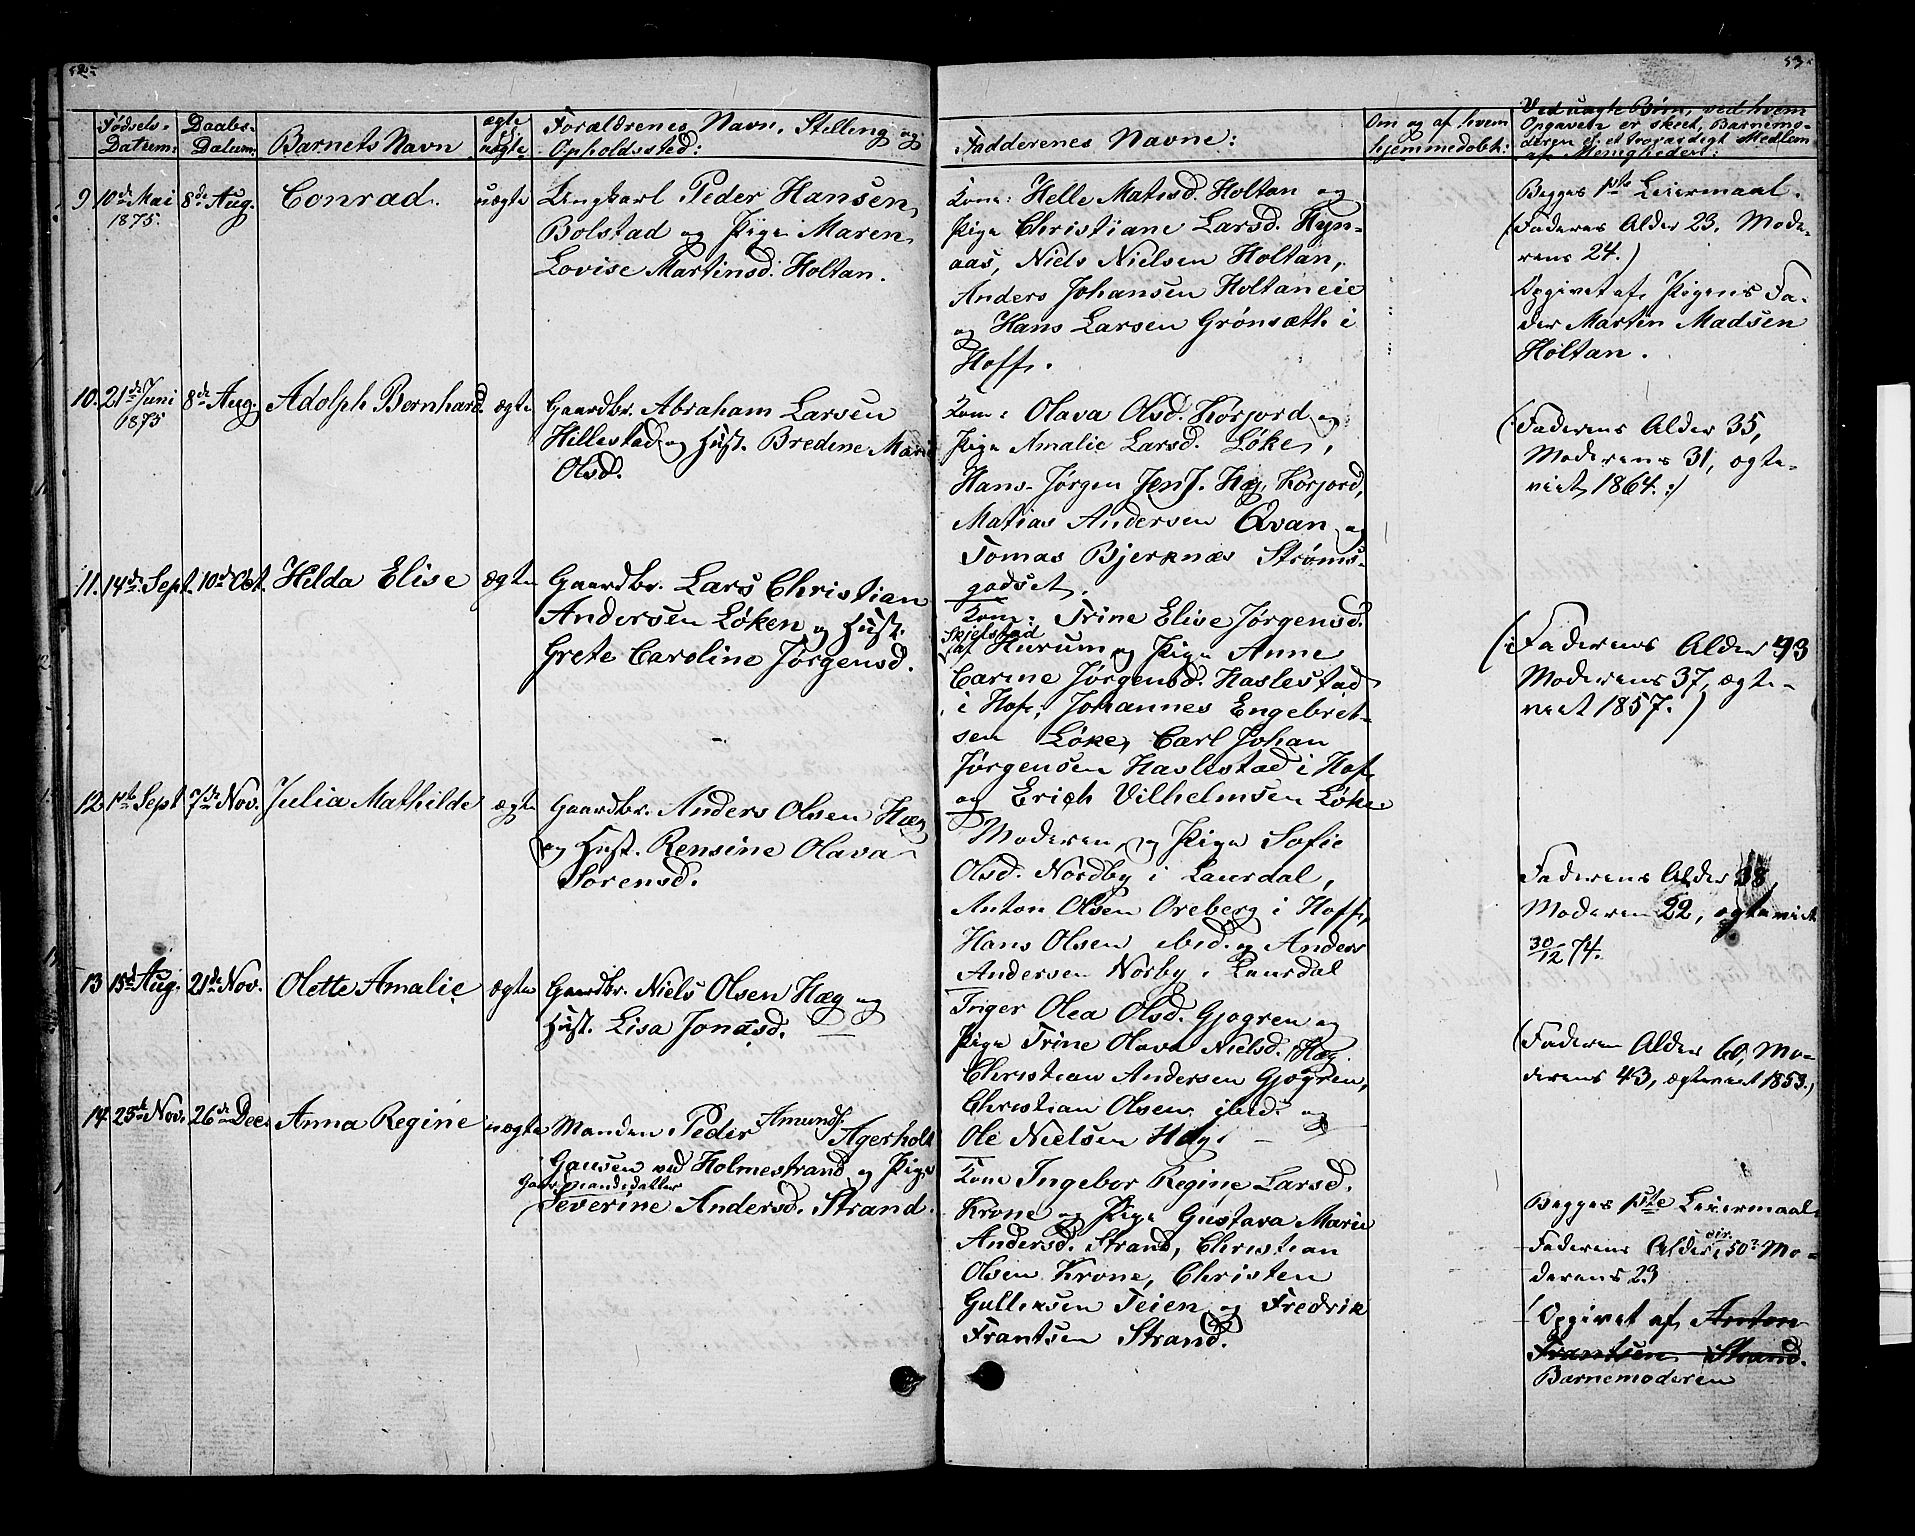 52.
53.
Fødsels-
Datum:
Daabs-
Datum:
Barnets Navn
ægte
el.
uægte
Forældrenes Navn, Stilling og
Opholdssted:
Fadderenes Navne:
Om og af hvem
hjemmedøbt:
Ved uægte Børn, ved hvem
Opgavet er skeet, Barnemo-
deren et troværdigt Medlem
af Menigheden:
9 10de Mai
1875.
8de Aug.
Conrad.
uægte
Ungkarl Peder Hansen
Bolstad og Pige Maren
Lovise Martinsd. Holtan.
Kone: Helle Matisd. Holtan og
Pige Christiane Larsd. Ryn-
aas, Niels Nielsen Holtan,
Anders Johansen Holtaneie
og Hans Larsen Grønsæth i
Hoff.
Begges 1ste Leiermaal.
(Faderens Alder 23, Mode-
rens 24.)
Opgivet af Pigens Fa-
der Martin Madsen
Holtan.
10. 21de Juni
1875
8de Aug.
Adolph Bernhard.
ægte
Gaardbr. Abraham Larsen
Hillestad og Hust. Bredene Marie
Olsd.
Kone: Olava Olsd. Korjord og
Pige Amalie Larsd. Løke,
Hans Jørgen Jens. Hæg, Korjord,
Matias Andersen Qvan og
Tomas Bjerknæs Strøms-
godset.
(Faderens Alder 35,
Moderens 31, ægte-
viet 1864.:)
11. 14de Sept.
10de Oct.
Hilda Elise
ægte
Gaardbr. Lars Christian
Andersen Løken og Hust.
Grete Caroline Jørgensd.
Kone: Trine Elise Jørgensd.
Skjelstad
af Hurum og Pige Anne
Carine Jørgensd. Haslestad
i Hof, Johannes Engebret-
sen Løke, Carl Johan
Jørgensen Haslestad i Hof
og Erich Vilhelmsen Løke
(: Faderens Alder 43
Moderens 37, ægte-
viet 1857.)
12 1ste Sept
7de Nov.
Julia Mathilde
ægte
Gaardbr. Anders Olsen Hæg
og Hust. Rensine Olava
Sorensd.
Moderen, og Pige Sofie
Olsd. Nordby i Laurdal,
Anton Olsen Oreberg i Hoff,
Hans Olsen ibid. og Anders
Andersen Norby i Laurdal
Faderens Alder 38,
Moderen 22, ægteviet
30/12 74.
13 15de Aug.
21de Nov.
Olette Amalie
ægte
Gaardbr. Niels Olsen Hæg og
Hust. Lisa Jonasd.
Inger Olea Olsd. Gjogren og
Pige Trine Olava Nielsd. Hæg.
Christian Andersen Gjogren,
Christian Olsen ibid. og
Ole Nielsen Hæg.
(Faderen Alder 60, Mo-
derens 43, ægteviet 1853.)
14 25de Nov.
26de Dec.
Anna Regine
uægte
Manden Peder Amunds. Agerholt
Gausen ved Holmestrand og Pige
Gaardmandsdatter
Severine Andersd. Strand.
Kone Ingebor Regine Larsd.
Krone og Pige Gustava Marie
Andersd. Strand, Christian
Olsen Krone, Christen
Gulliksen Teien og Fredrik
Frantsen Strand.
Begges 1ste Leiermaal.
Faderens Alder cir. 50? Mo-
derens 23
(Opgivet af Anton
Frantsen Strand.
Barnemoderen